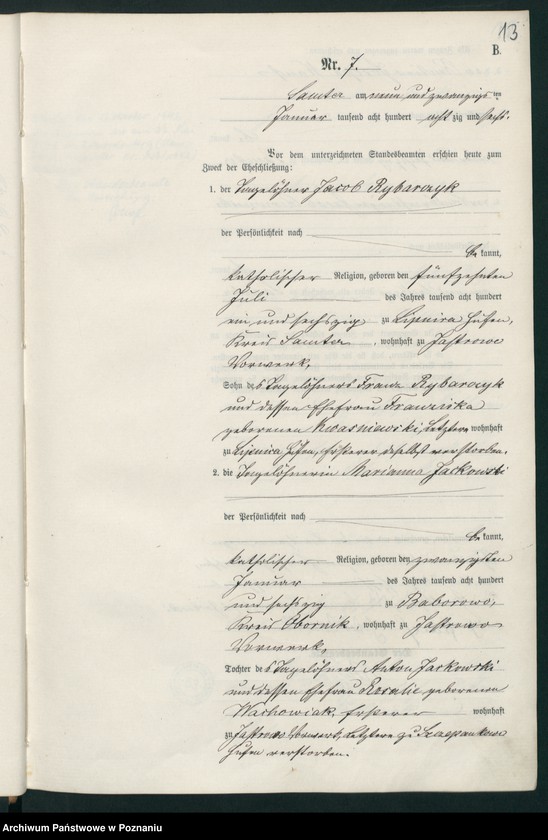 13
B.
Nr. 7.
Samter am neun und zwanzigs ten
Januar tausend acht hundert acht zig und sechs.
Vor dem unterzeichneten Standesbeamten erschien heute zum
Zweck der Eheschließung:
1. der Tagelöhner Jacob Rybarczyk
der Persönlichkeit nach
be kannt,
katholischer Religion, geboren den fünfzehnten
Juli des Jahres tausend acht hundert
ein und sechszig zu Lipnica Hufen,
Kreis Samter, wohnhaft zu Jastrowo
Vorwerk,
Sohn des Tagelöhners Franz Rybarczyk
und dessen Ehefrau Franziska
geborenen Kwasniewski, Letztere wohnhaft
zu Lipnica Hufen, Ersterer daselbst verstorben.
2. die Tagelöhnerin Marianna Jackowski
der Persönlichkeit nach
be kannt,
katholischer Religion, geboren den zwanzigsten
Januar des Jahres tausend acht hundert
und sechszig zu Baborowo,
Kreis Obornik, wohnhaft zu Jastrowo
Vorwerk,
Tochter des Tagelöhners Anton Jackowski
und dessen Ehefrau Rosalie geborenen
Wachowiak, Ersterer wohnhaft
zu Jastrowo Vorwerk, Letztere zu
Hufen verstorben.
Archiwum Państwowe w Poznaniu